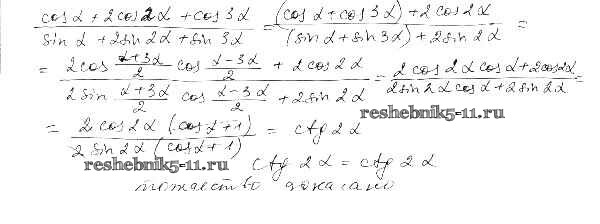 (cos α + 2cos 2α + cos 3α)/(sin α + 2sin 2α + sin 3α) = ((cos α + cos 3α) + 2cos 2α)/((sin α + sin 3α) + 2sin 2α) =
= (2cos (α+3α)/2 cos (α-3α)/2 + 2cos 2α)/(2sin (α+3α)/2 cos (α-3α)/2 + 2sin 2α) = (2cos 2α cos α + 2cos 2α)/(2sin 2α cos α + 2sin 2α) =
reshebnik5-11.ru
= (2cos 2α (cos α + 1))/(2 sin 2α (cos α + 1)) = ctg 2α
reshebnik5-11.ru
ctg 2α = ctg 2α
тождество доказано